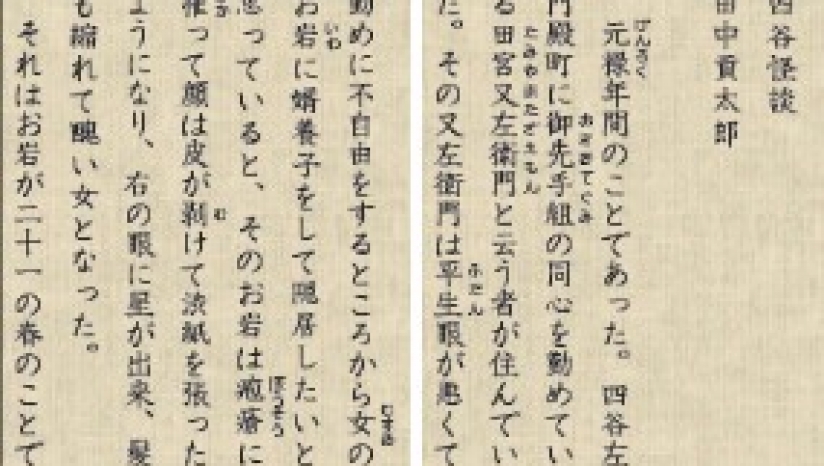 四谷怪談
田中貢太郎
げんろく
元禄年間のことであった。四谷左
おさきてぐみ
門殿町に御先手組の同心を勤めてい
たみやまたざえもん
る田宮又左衛門と云う者が住んでい
ふだん
た。その又左衛門は平生眼が悪くて
むすめ
勤めに不自由をするところから女の
いわ
お岩に婿養子をして隠居したいと
ほうそう
思っていると、そのお岩は疱瘡に
む
罹って顔は皮が剥けて渋紙を張った
ようになり、右の眼に星が出来、髪
も縮れて醜い女となった。
それはお岩が二十一の春のことで